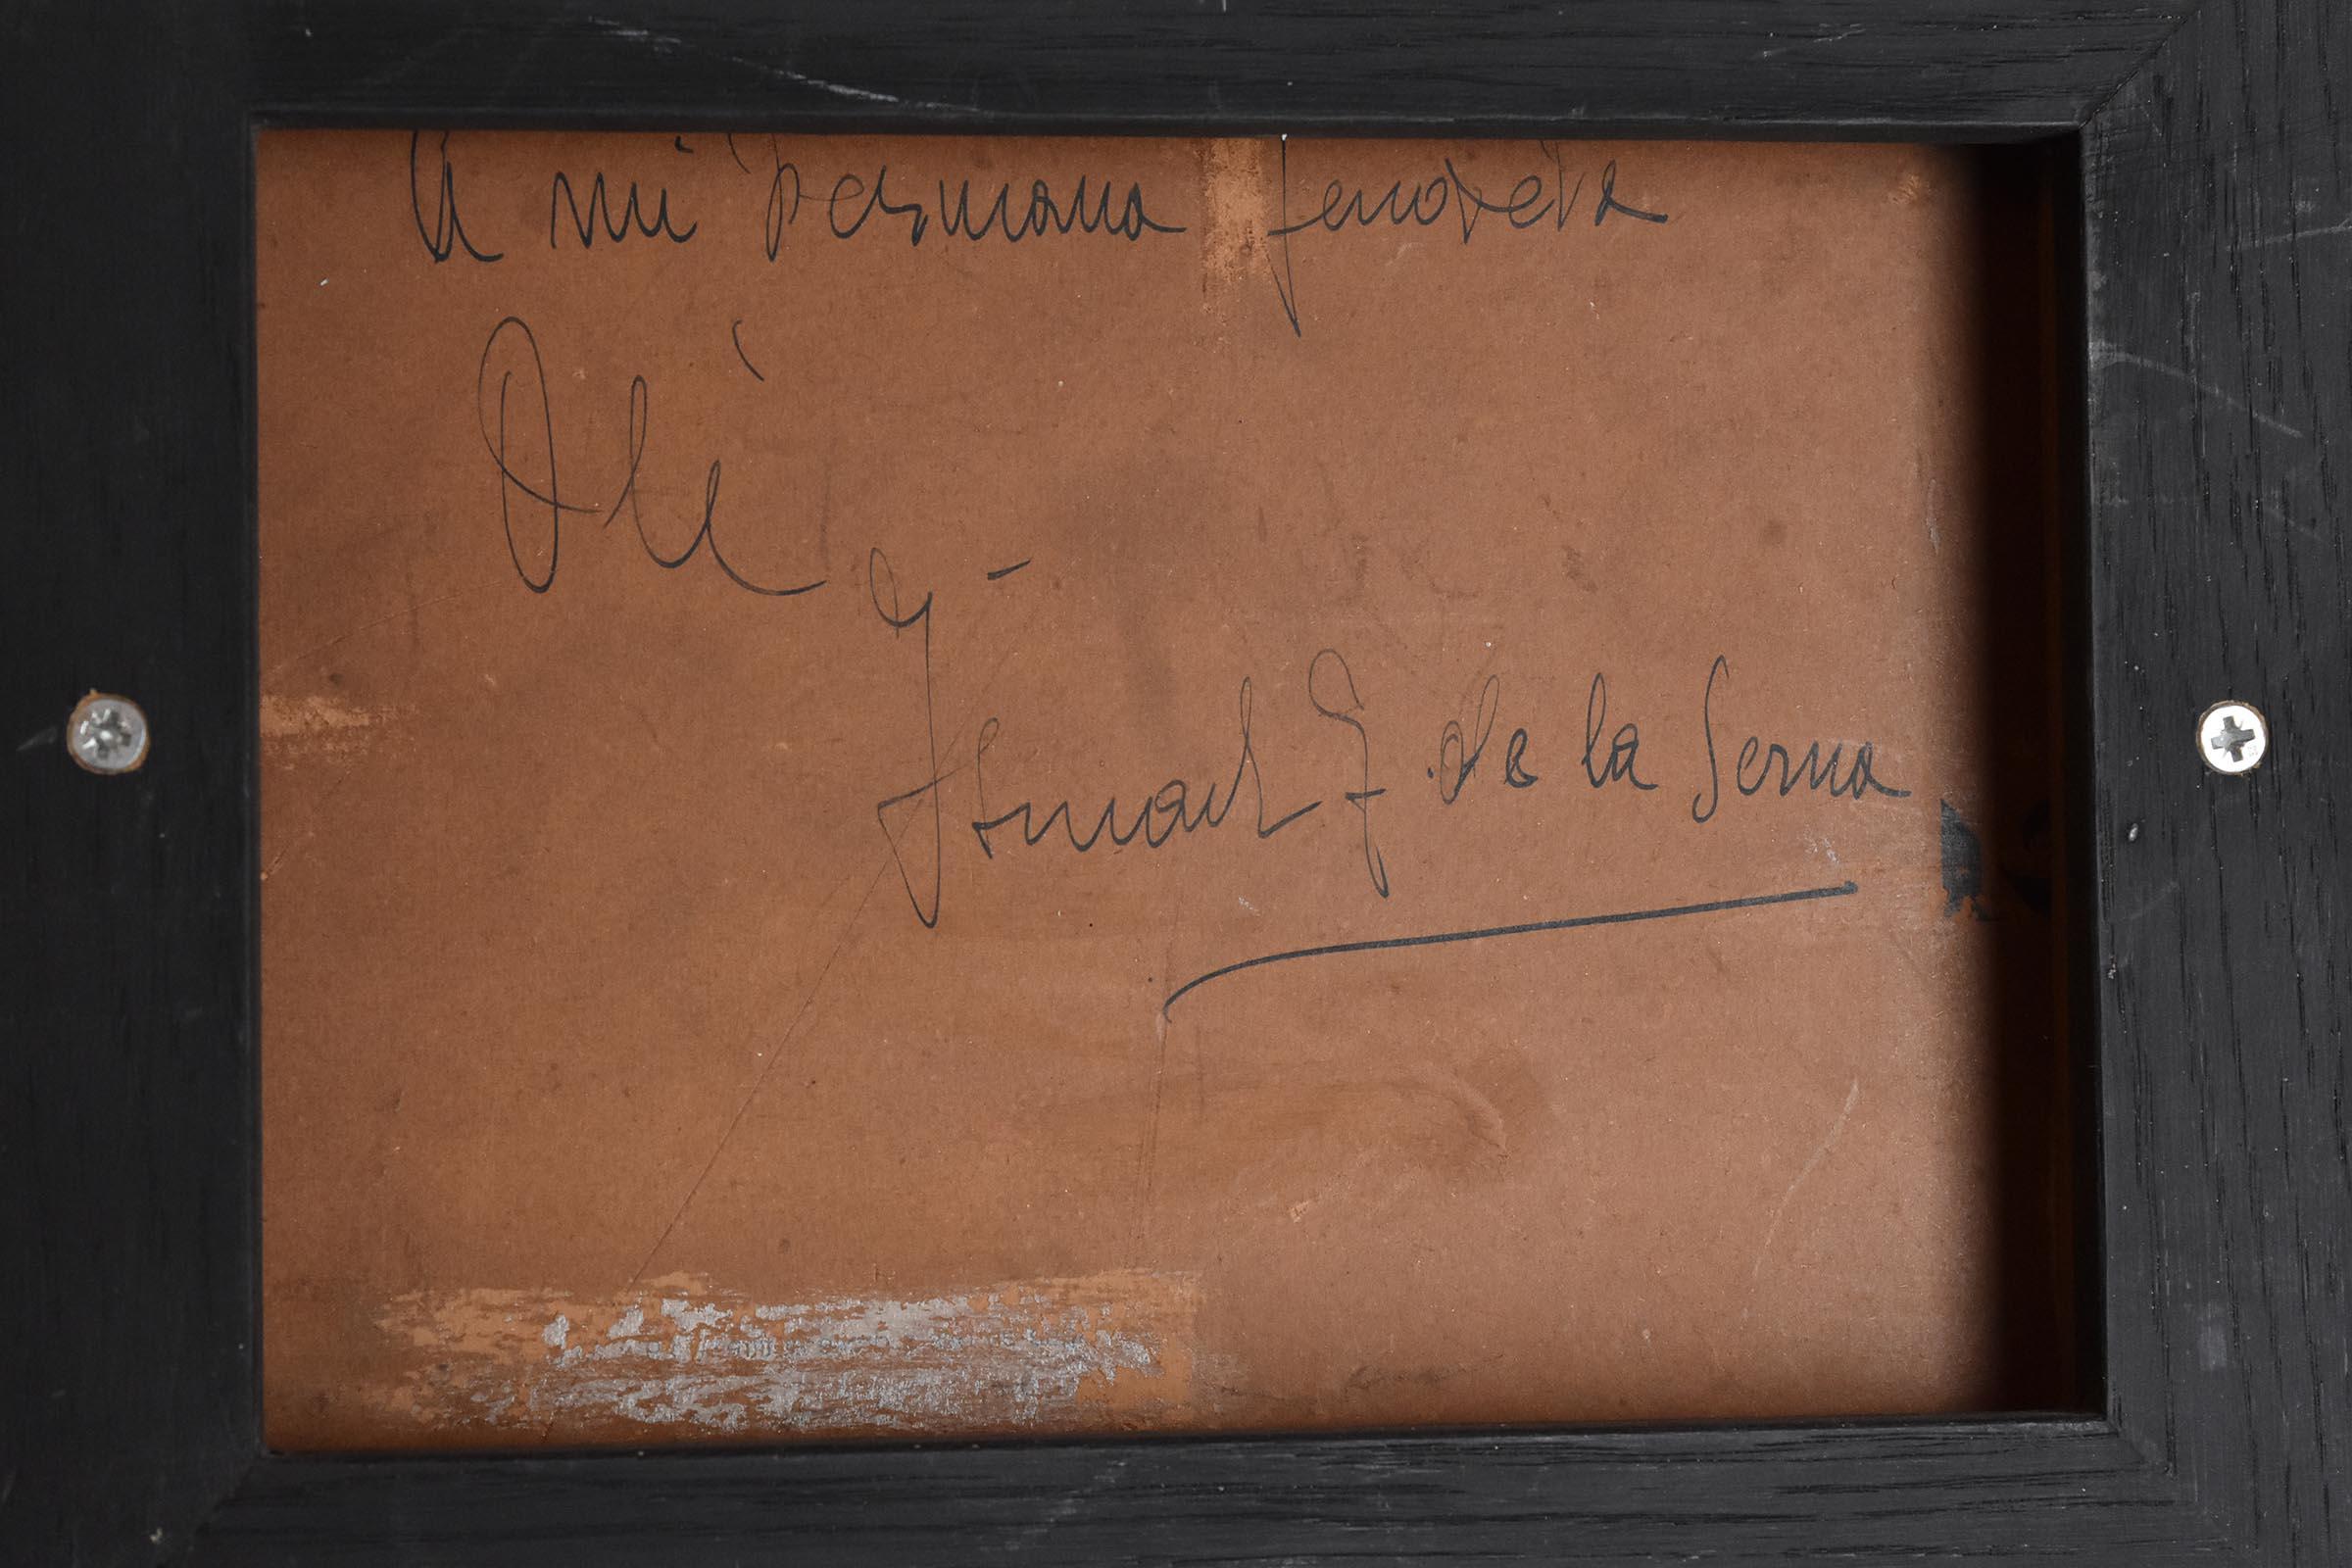 A mi hermana Genoveva
Olé
Ismael G de la Serna